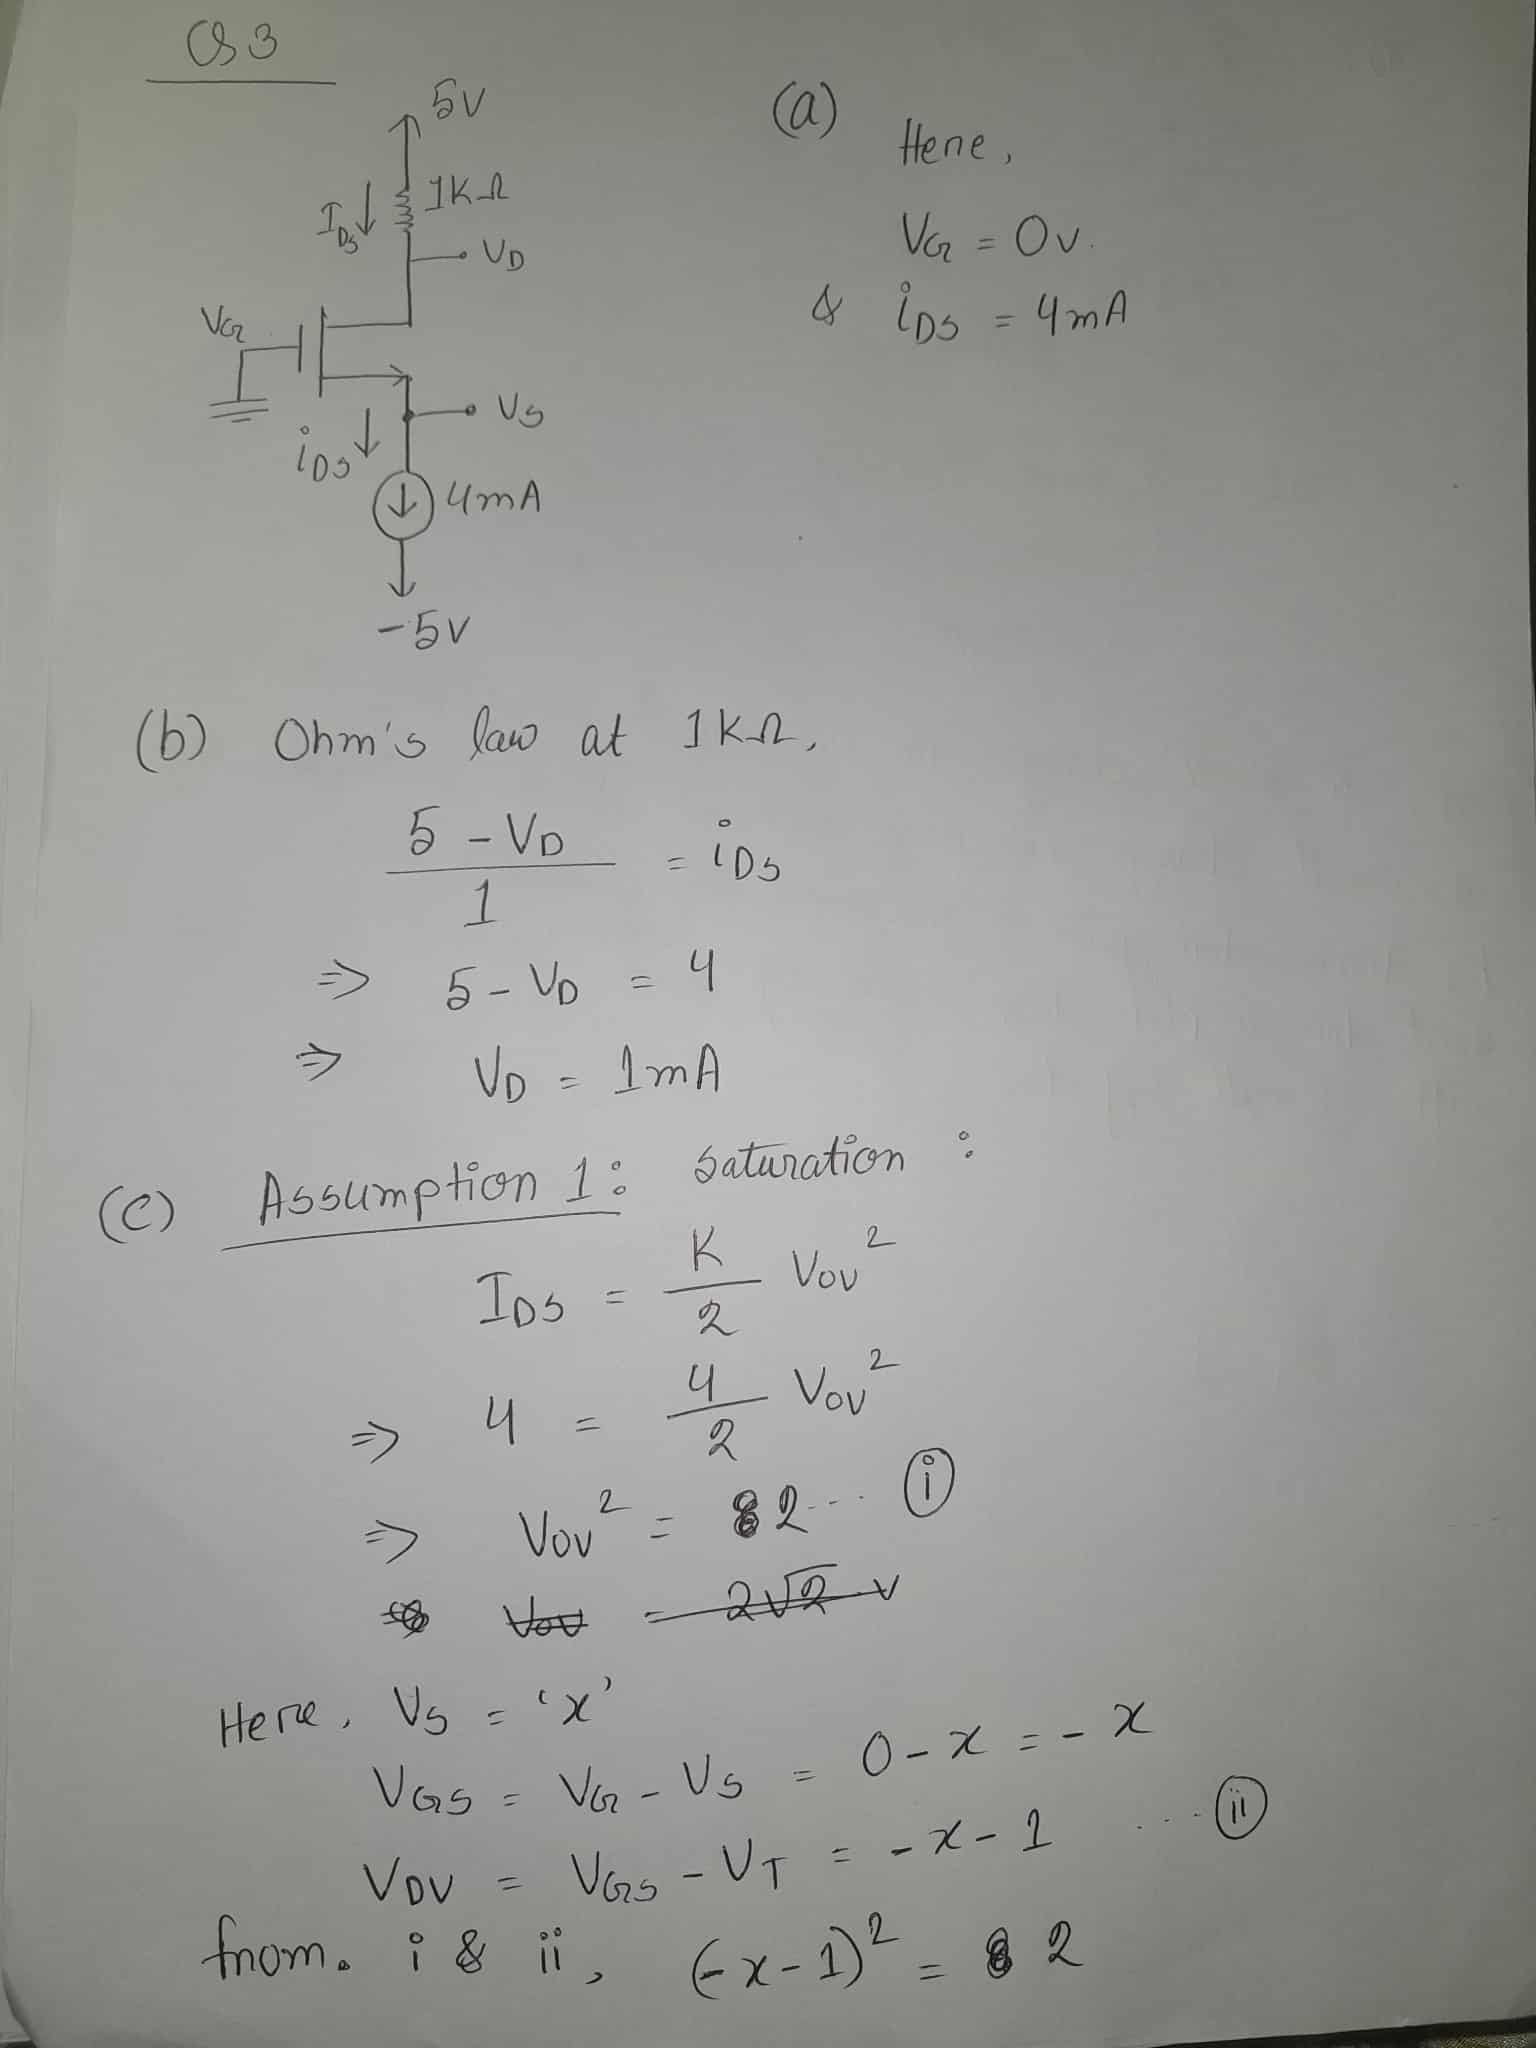 Q3
5V
I_DS ↓ 1KΩ
V_D
V_G
V_S
i_DS ↓
4mA
-5V
(a) Here,
V_G = 0v.
& i_DS = 4mA
(b) Ohm's law at 1KΩ,
(5 - V_D)/1 = i_DS
⇒ 5 - V_D = 4
⇒ V_D = 1mA
(c) Assumption 1: Saturation :
I_DS = K/2 V_OV²
⇒ 4 = 4/2 V_OV²
⇒ V_OV² = 2 ... (i)
V_OV = 2√2 V
Here, V_S = 'x'
V_GS = V_G - V_S = 0 - x = - x
V_OV = V_GS - V_T = - x - 1 ... (ii)
from. i & ii, (-x-1)² = 2